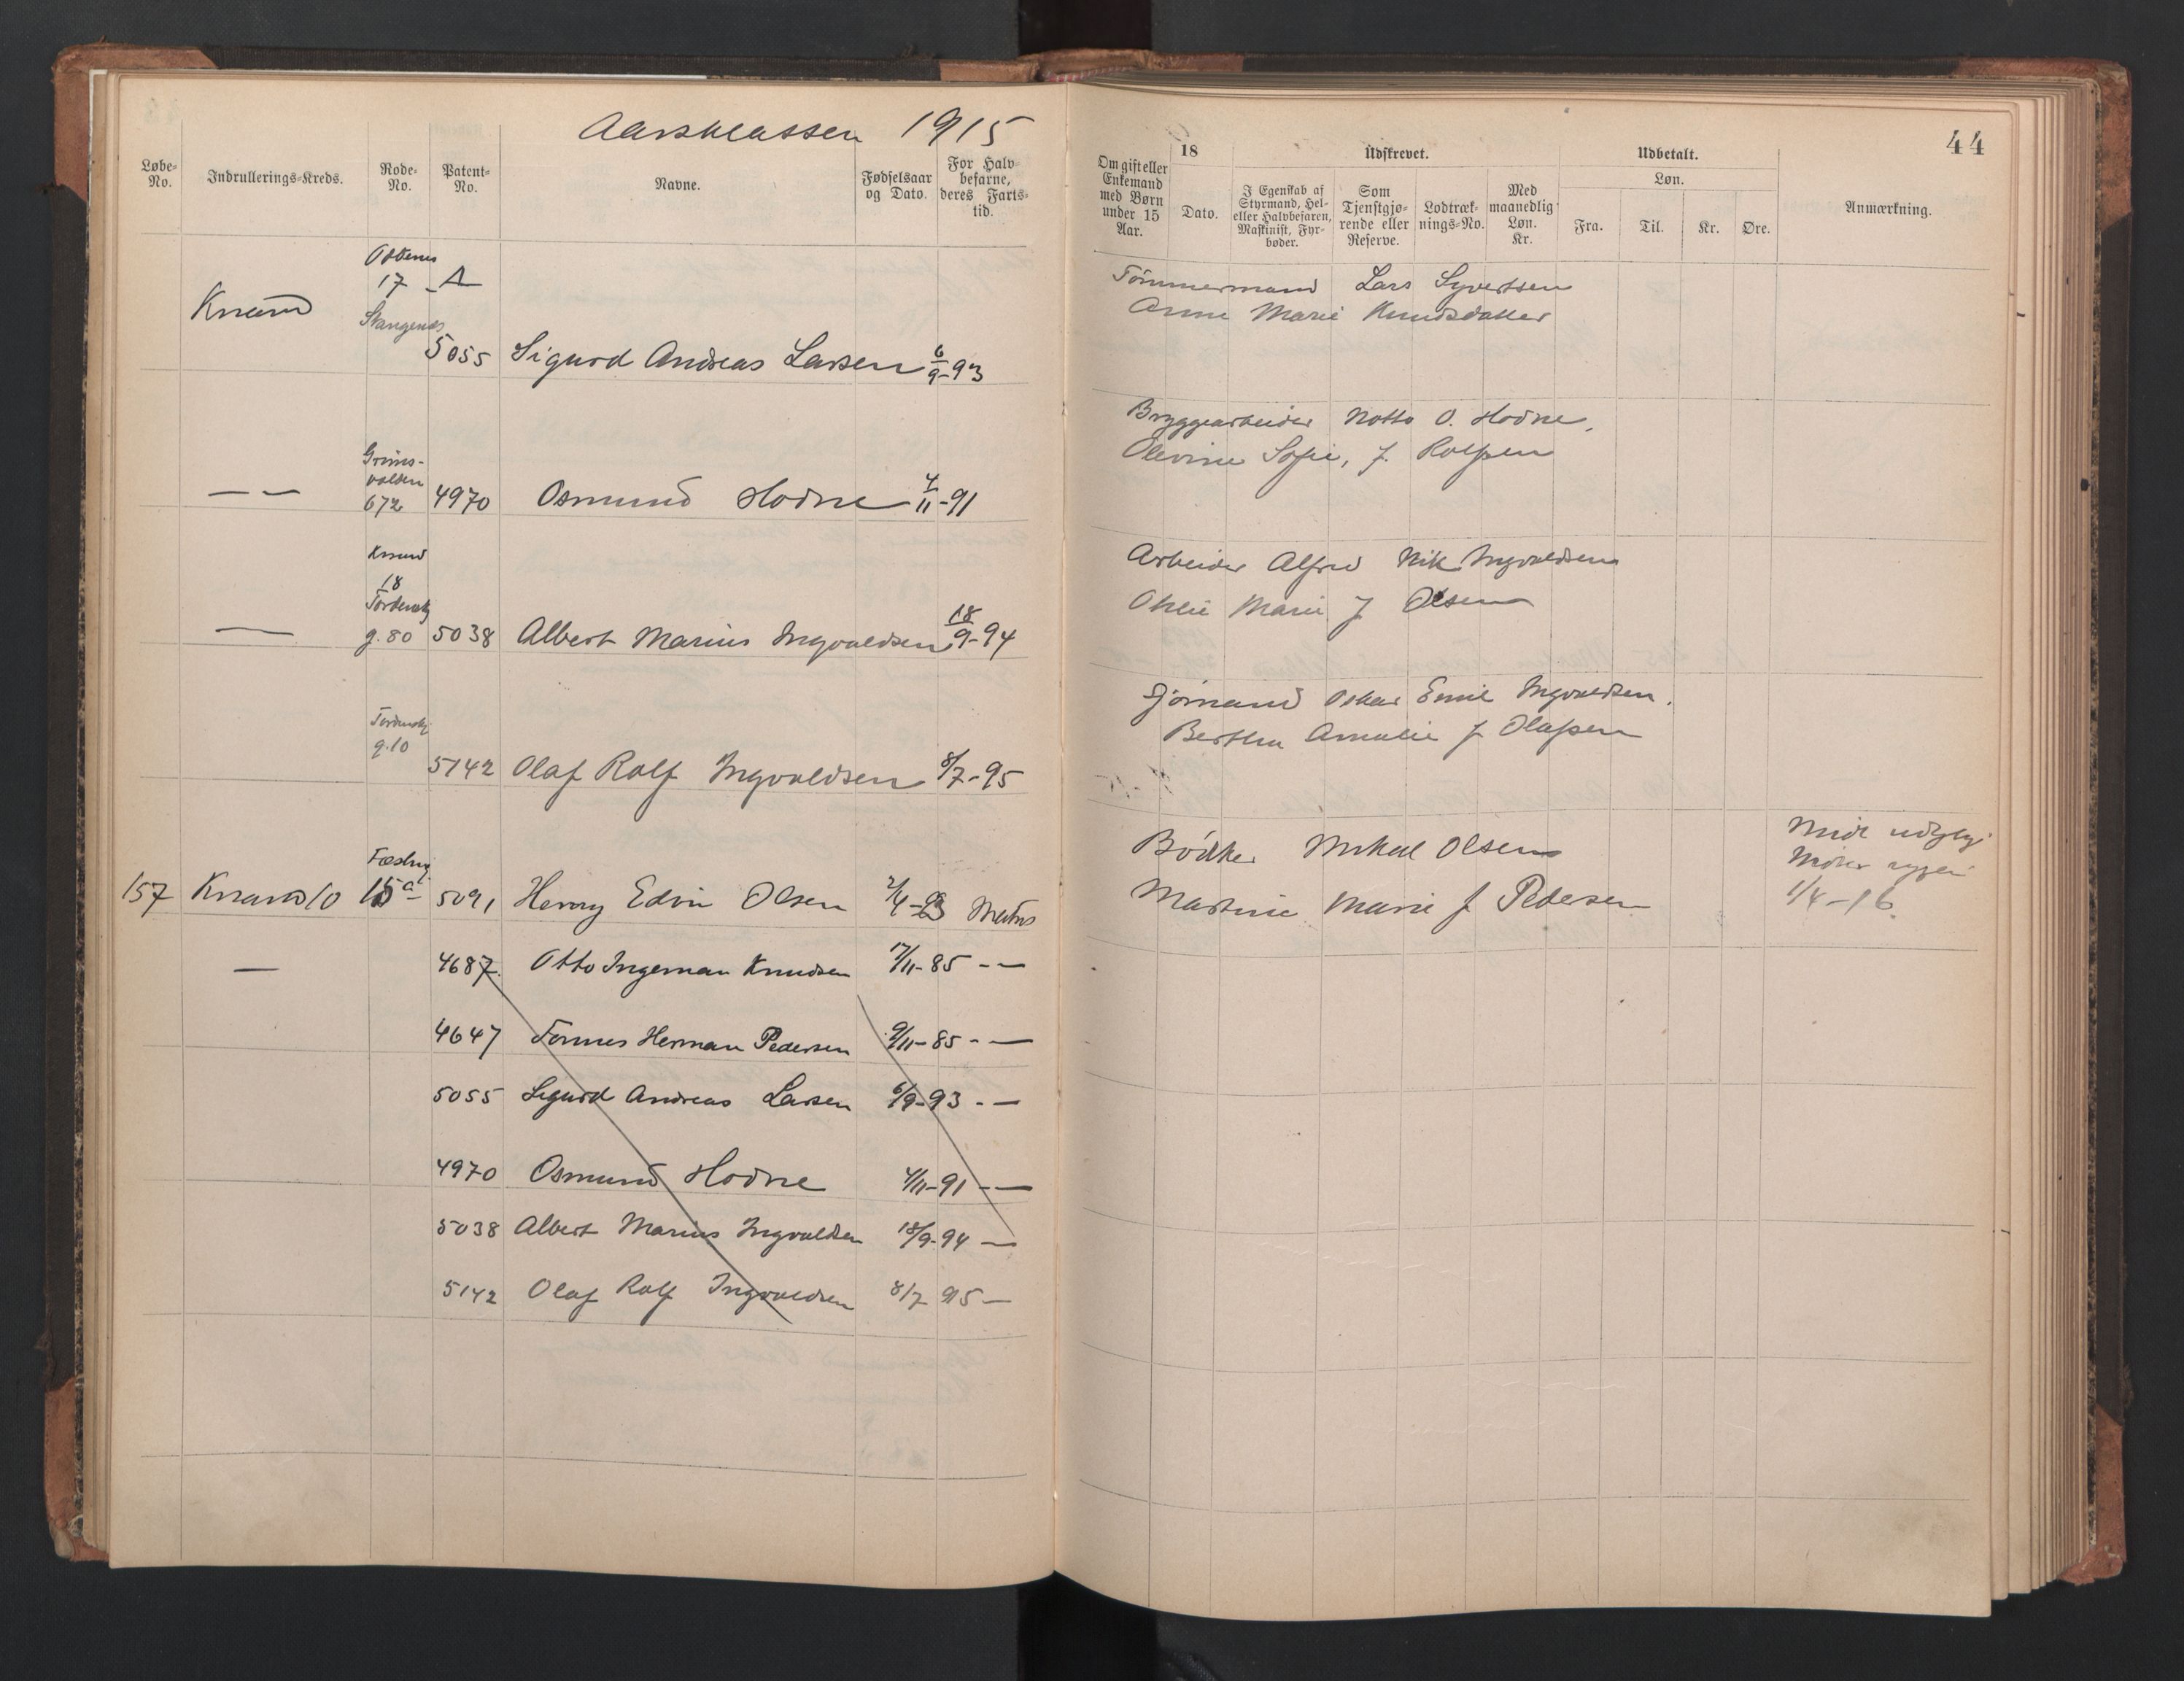 Aarsklassen 1915
Løbe-No.
Indrullerings-Kreds.
Rode-No.
Patent-No.
Navne.
Fødselsaar og Dato.
For Halvbefarne, deres Farts-tid.
17 A
Krsand
5055 Sigurd Andreas Larsen 6/9-93
— — 672 4970 Osmund Hodne 4/11-91
Krsand
18
— g. 80 5038 Albert Marius Ingvaldsen 18/9-94
g. 10
5142 Olaf Rolf Ingvaldsen 8/7-95
157 Krsand 10 15a 5091 Henry Edvin Olsen
— 4687 Otto Ingeman Knudsen 17/11-85 - —
4647 Tønnes Herman Pedersen 9/11-85 - —
5055 Sigurd Andreas Larsen 6/9-93 - —
4970 Osmund Hodne 4/11-91 - —
5038 Albert Marius Ingvaldsen 18/9-94 —
5142 Olaf Rolf Ingvaldsen 8/7 95 —
44
Om gift eller Enkemand med Børn under 15 Aar.
18
Dato.
Udskrevet.
I Egenskab af Styrmand, Hel- eller Halvbefaren, Maskinist, Fyrbøder.
Som Tjenstgjørende eller Reserve.
Lodtræknings-No.
Med maanedlig Løn. Kr.
Udbetalt.
Løn.
Fra.
Til.
Kr.
Øre.
Anmærkning.
Tømmermand Lars Syvertsen
Anne Marie Knudsdatter
Bryggearbeider Notto O. Hodne,
Olevine Sofie, f. Rolfsen
Arbeider Alfred Nik Ingvaldsen
Marie f Olsen
Sjømand Oskar Emil Ingvaldsen.
Bertha Amalie f Olafsen
Bødker Mikael Olsen
Martine Marie f Pedersen
1/4-16.